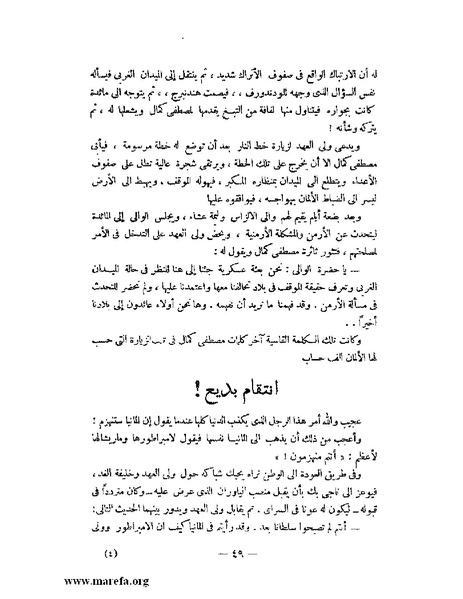 له أن الارتباك الواقع فى صفوف الأتراك شديد ، ثم ينتقل إلى الميدان الغربى فيسأله
نفس السؤال الذى وجهه للودندورف ، ، فيصمت هندنبرج ، ، ثم يتوجه الى مائدة
كانت بجواره فيتناول منها لفافة من التبغ يقدمها لمصطفى كمال ويشعلها له ثم
يتركه وشأنه !
ويدعى ولى العهد لزيارة خط النار بعد أن توضع له خطة مرسومة ، فيأبى
مصطفى كمال الا أن يخرج على تلك الخطة ، ويرتقى شجرة عالية تطل على صفوف
الأعداء ويتطلع الى الميدان بمنظاره المكبر ، فيهوله الموقف . ويهبط الى الأرض
ليسر الى الضباط الألمان بهواجسه ، فيوافقوه عليها
وبعد بضعة أيام يقيم لهم والى الالزاس وليمة عشاء ، ويجلس الوالى إلى المائدة
ليتحدث عن الأرمن والمشكلة الأرمنية ، ويحض ولى العهد على التدخل فى الأمر
لمصلحتهم ، فتثور ثائرة مصطفى كمال ويقول له :
— يا حضرة الوالى : نحن بعثة عسكرية جئنا إلى هنا للنظر فى حالة الميدان
الغربى ونعرف حقيقة الموقف فى بلاد تحالفنا معها واعتمدنا عليها ، ولم نحضر للتحدث
فى مسألة الأرمن . وقد فهمنا ما نريد أن نفهمه . وها نحن أولاء عائدون إلى بلادنا
أخيراً . .
وكانت تلك الكلمة القاسية آخر كلمات مصطفى كمال فى تلك الزيارة التى حسب
لها الألمان ألف حساب
انتقام بديع !
عجيب والله أمر هذا الرجل الذى يكذب الدنيا كلها عندما يقول إن المانيا ستنهزم !
وأعجب من ذلك أن يذهب الى المانيا نفسها فيقول لامبراطورها وماريشالها
الأعظم : « أنتم منهزمون ! »
وفى طريق العودة الى الوطن تراه يحيك شباكه حول ولى العهد وخليفة الغد ،
فيوعز الى ناجى بك بأن يقبل منصب الياوران الذى عرض عليه — وكان متردداً فى
قبوله — ليكون له عونا فى السراى . ثم يقابل ولى العهد ويدور بينهما الحديث التالى :
— أنتم لم تصبحوا سلطانا بعد . وقد رأيتم فى المانيا كيف ان الامبراطور وولى
— ٤٩ —
(٤)
www.marefa.org